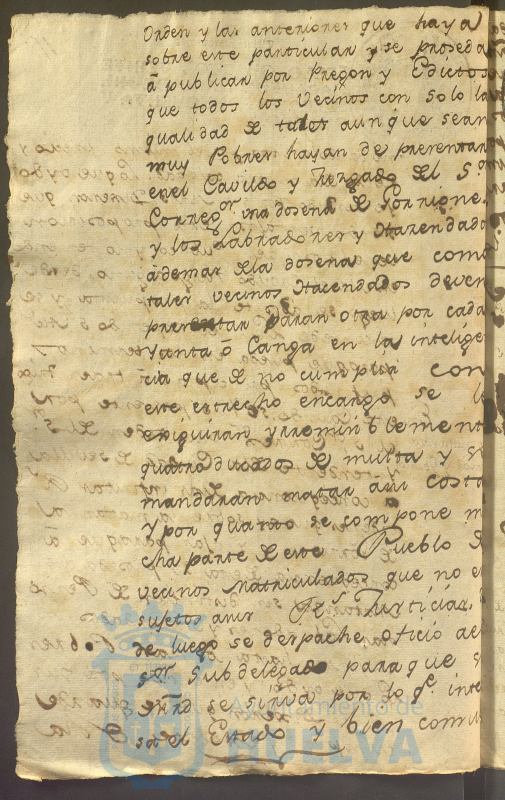 Orden y las anteriores que haya
sobre este particular y se proseda
á publicar por Pregon y Edictos
que todos los Vecinos con solo la
qualidad de tales aunque sean
muy Pobres hayan de presentar
enel Cavildo y Juzgado del S.or
Correg.or una dosena de Gorriones
y los Labradores y Hazendados
ademas de la dosena que como
tales vecinos Hacendados deven
presentar daran otra por cada
Yunta ó Canga en la intelige
cia que de no cumplir con
este estrecho encargo se le
exiguiran yrremisiblemente
quatro ducados de multa y se
mandaran matar asu costa
Y por quanto se compone m
cha parte de este Pueblo de
vecinos Matriculados que no e
sujetos a mis R.s Justicias,
de luego se despache oficio ael
S.or Subdelegado para que s
se sirva por lo q.e inte
sa el Estado y bien comun
Ayuntamiento de
HUELVA